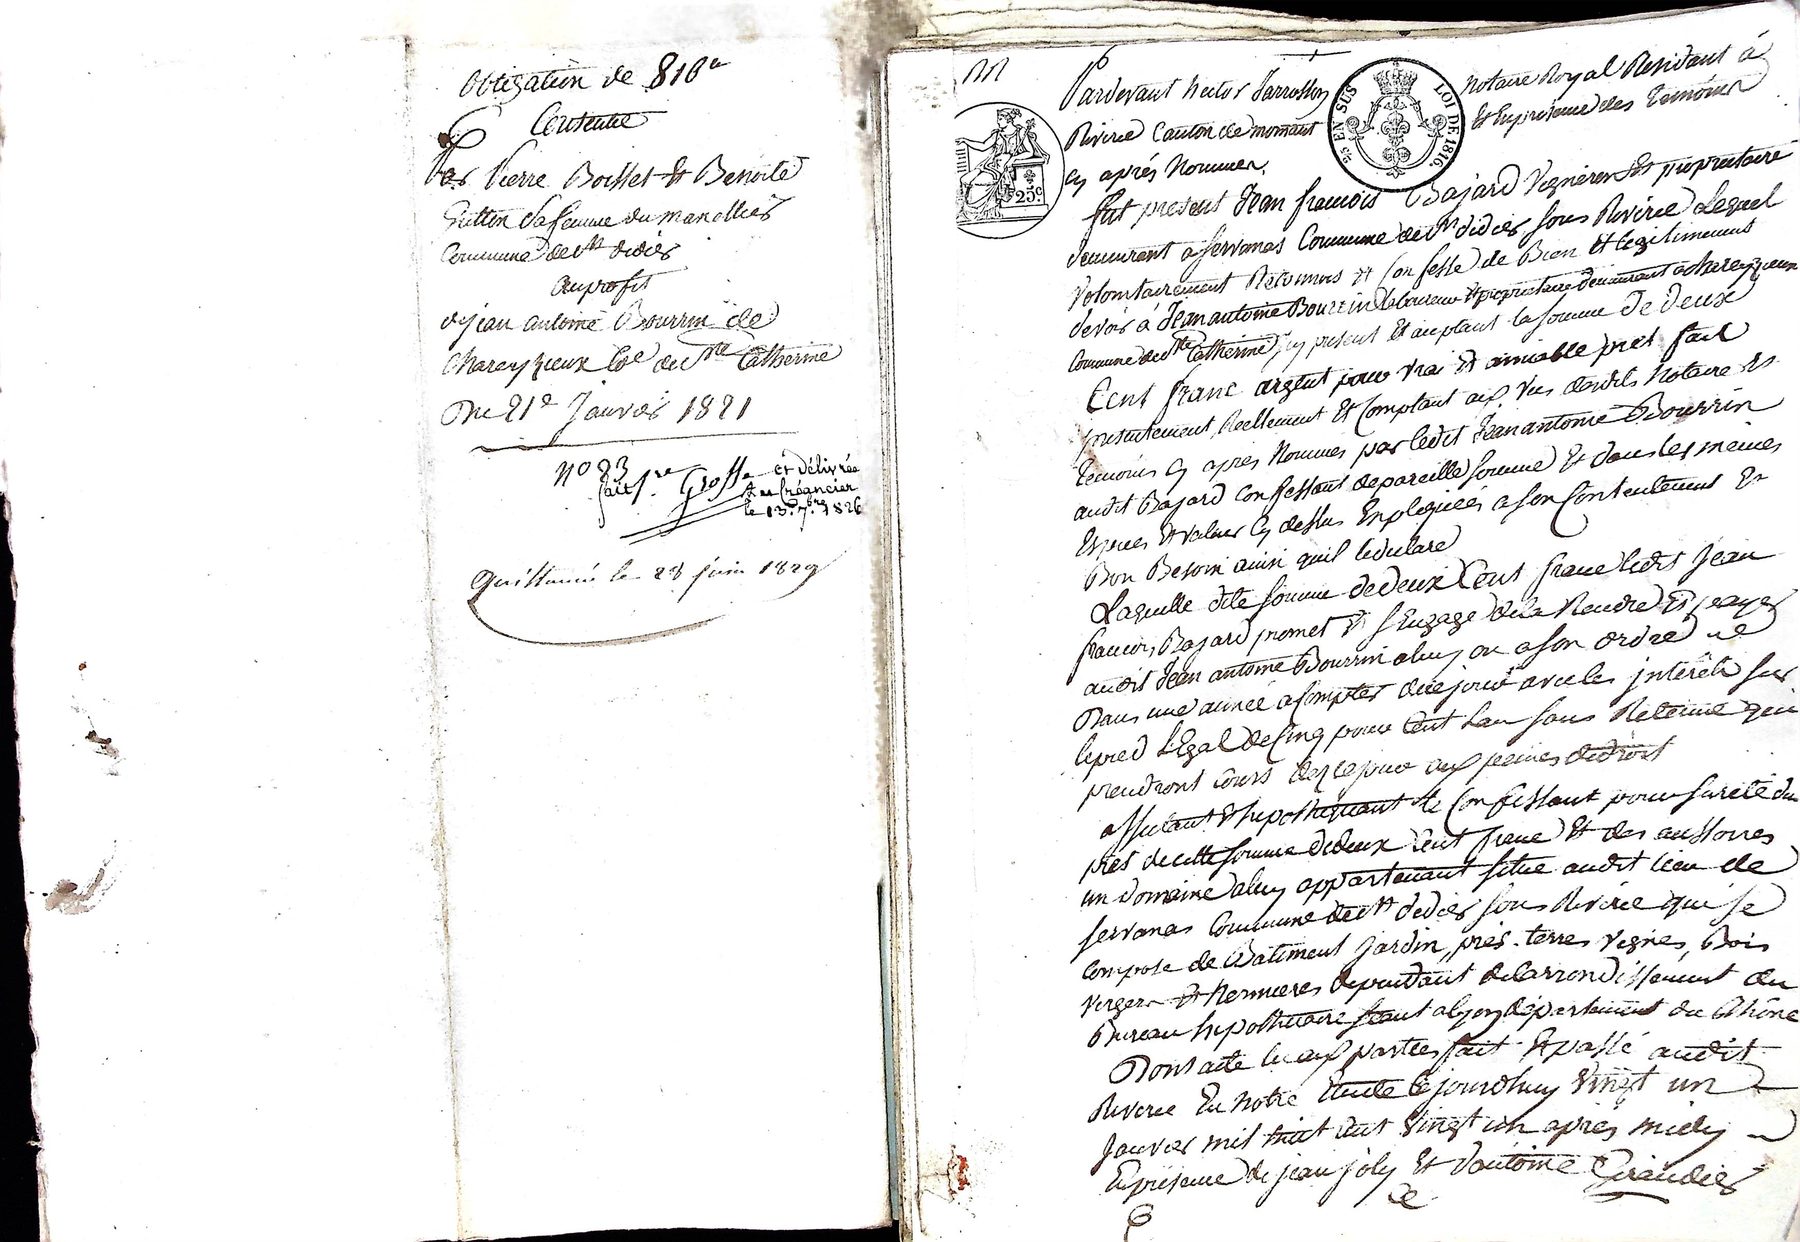 Obligation de 816 fr
Consentie
Par Pierre Boisset et Benoite
Guttin sa femme du manellier
Commune de St didier
au profit
de jean antoine Bourrin de
Chareyzieux Cne de Ste Catherine
Du 21e Janvier 1821
No 23
fait 1re Grosse et délivrée
au Créancier
le 13. 7bre 1826
Quittancé le 28 juin 1829
Pardevant hector Jarrosson notaire Royal Residant á
Riverie Canton de mornant Et En presence des temoins
Cy aprés Nommer.
25 EN SUS LOI DE 1816.
25c.
fut present Jean francois Bajard Vigneron Et proprietaire
demeurant a servanas Commune de St didier sous Riverie Lequel
volontairement Reconnois et Confesse de Bien Et legitimement
devoir á Jean antoine Bourrin laboureur Et proprietaire demeurant a chareyzieux
Commune de Ste Catherine, Cy present Et aceptant la somme de deux
Cent franc argent pour vrai Et amiable prèt fait
presentement, Reellement Et Comptant aux vus desdits Notaire et
temoins Cy apres Nommes par ledit Jean antoine Bourrin
audit Bajard Confessant de pareille somme Et dans les memes
Especes Et valeur Cy dessus Expliquées a son Contentement Et
Bon Besoin ainsi quil le declare
Laquelle dite somme de deux Cent franc ledit Jean
francois Bajard promet Et s'Engage de la Rendre Et payer
audit Jean antoine Bourrin a luy ou a son ordre
Dans une année a Compter de ce jour avec les interêts sur
le pied Légal de Cinq pour Cent Lan sans Retenue qui
prendront cours dez ce jour aux peines de droit
affectant Et hipothequant le Confessant pour sureté du
pret de cette somme de deux Cent franc Et des accessoires
un domaine a luy appartenant situé audit lieu de
servanas Commune de St didier sous Riverie qui se
Compose de Batiment Jardin, prés, terres vignes, Bois
verger Et Hermieres dependant de larrondissement du
Bureau hipothecaire séant a lyon departement du Rhône
Dont acte lu aux parties fait Et passé audit
Riverie En notre Etude Cejourdhuy vingt un
Janvier mil huit cent vingt un après midy
En presence de jean joly Et d'antoine Giraudier